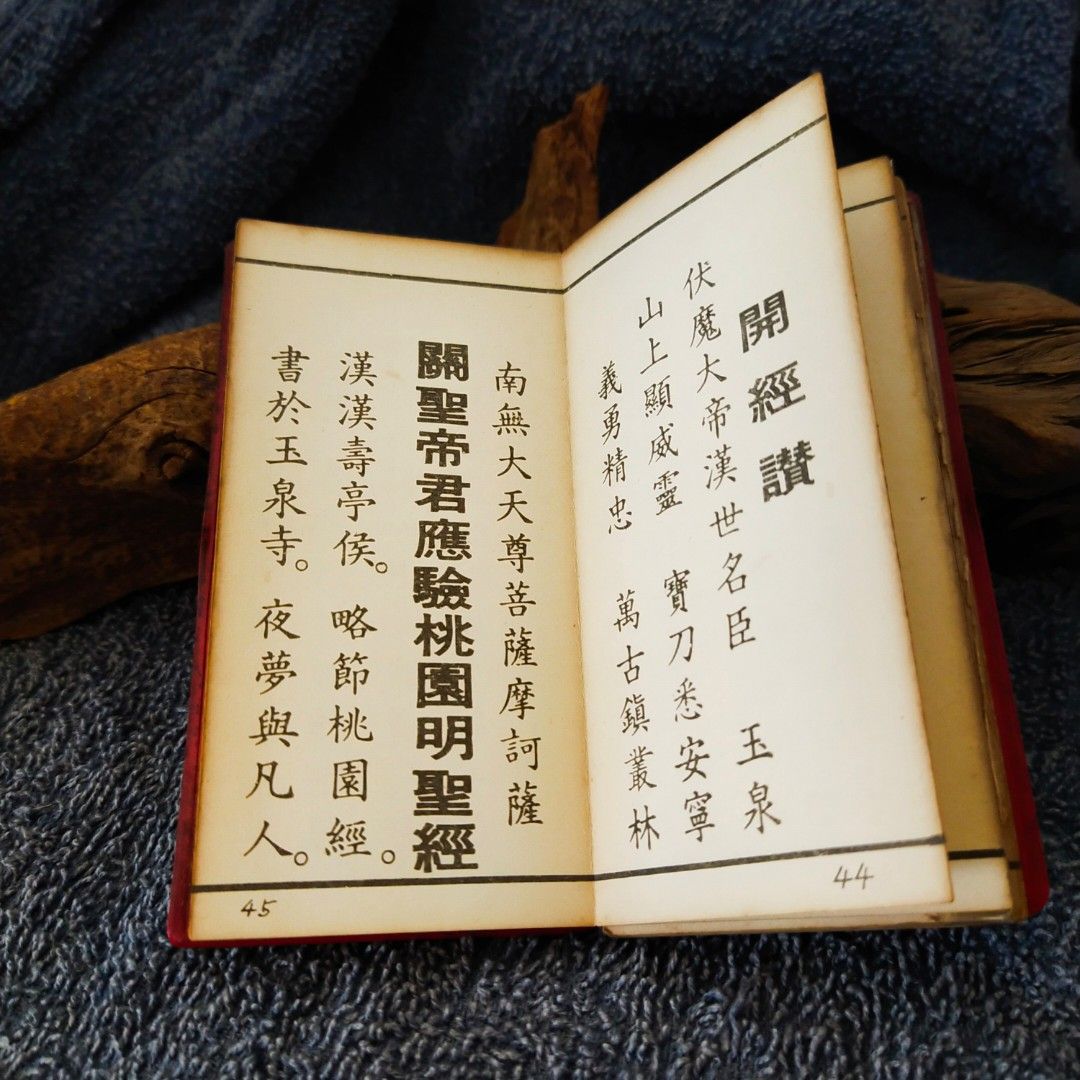 開經讚
伏魔大帝漢世名臣　玉泉
山上顯威靈　寶刀悉安寧
義勇精忠　萬古鎮叢林
44
南無大天尊菩薩摩訶薩
關聖帝君應驗桃園明聖經
漢漢壽亭侯。略節桃園經。
書於玉泉寺。夜夢與凡人。
45